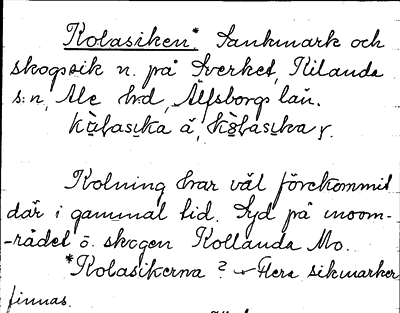 Kolasiken* Sankmark och
skogssik n. på Sverket, Kilanda
s:n, Ale hd, Älfsborgs län.
kùlasịka å, kòlasịka y.
Kolning har väl förekommit
där i gammal tid. Syd på inom-
-rådet ö. skogen Kollanda Mo.
*Kolasikerna? Flera sikmarker
finnas.